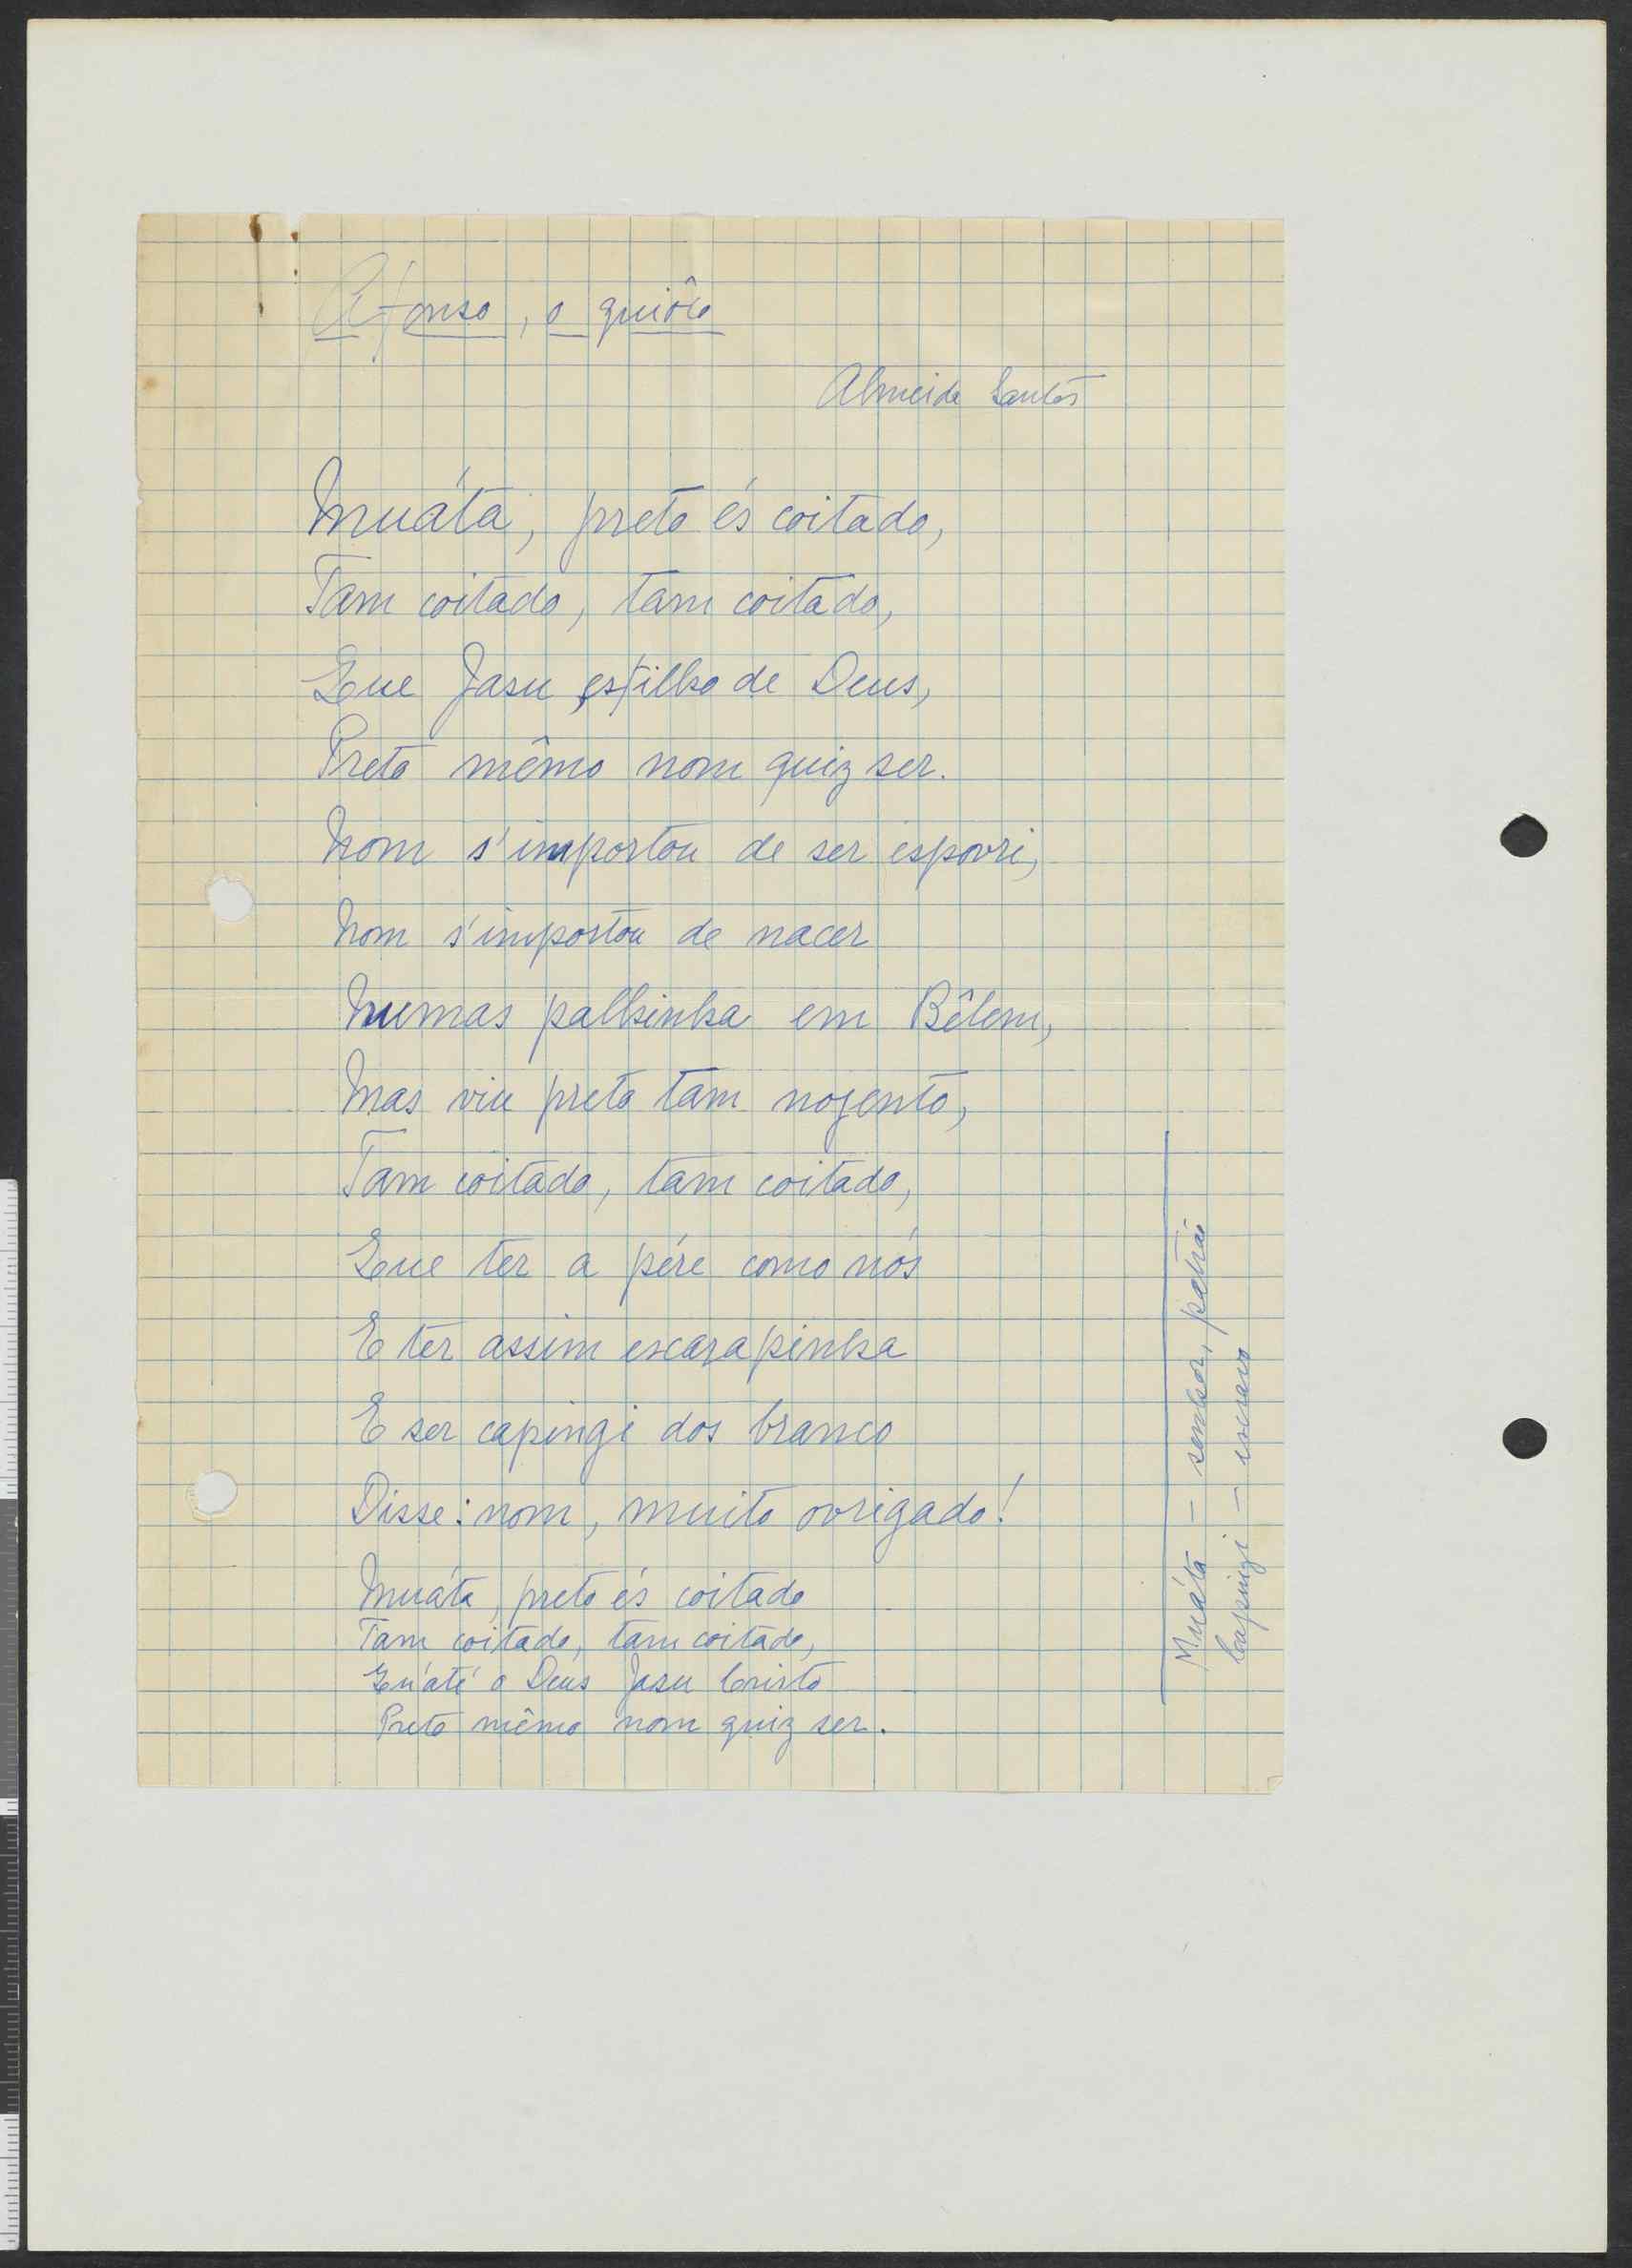 Afonso, o quiôco
Almeida Santos
Muáta, preto és coitado,
Tam coitado, tam coitado,
Que Jasu, esfilho de Deus,
Preto mêmo nom quiz ser.
Nom s'importou de ser espovri,
Nom s'importou de nacer
Numas palhinha em Bêlem,
Mas viu preto tam nojento,
Tam coitado, tam coitado,
Que ter a pére como nós
E ter assim escarapinha
E ser capingi dos branco
Disse: nom, muito ovrigado!
Muáta, preto és coitado
Tam coitado, tam coitado,
Qu'até o Deus Jasu Cristo
Preto mêmo nom quiz ser.
Muáta - senhor, patrão
Capingi - escravo